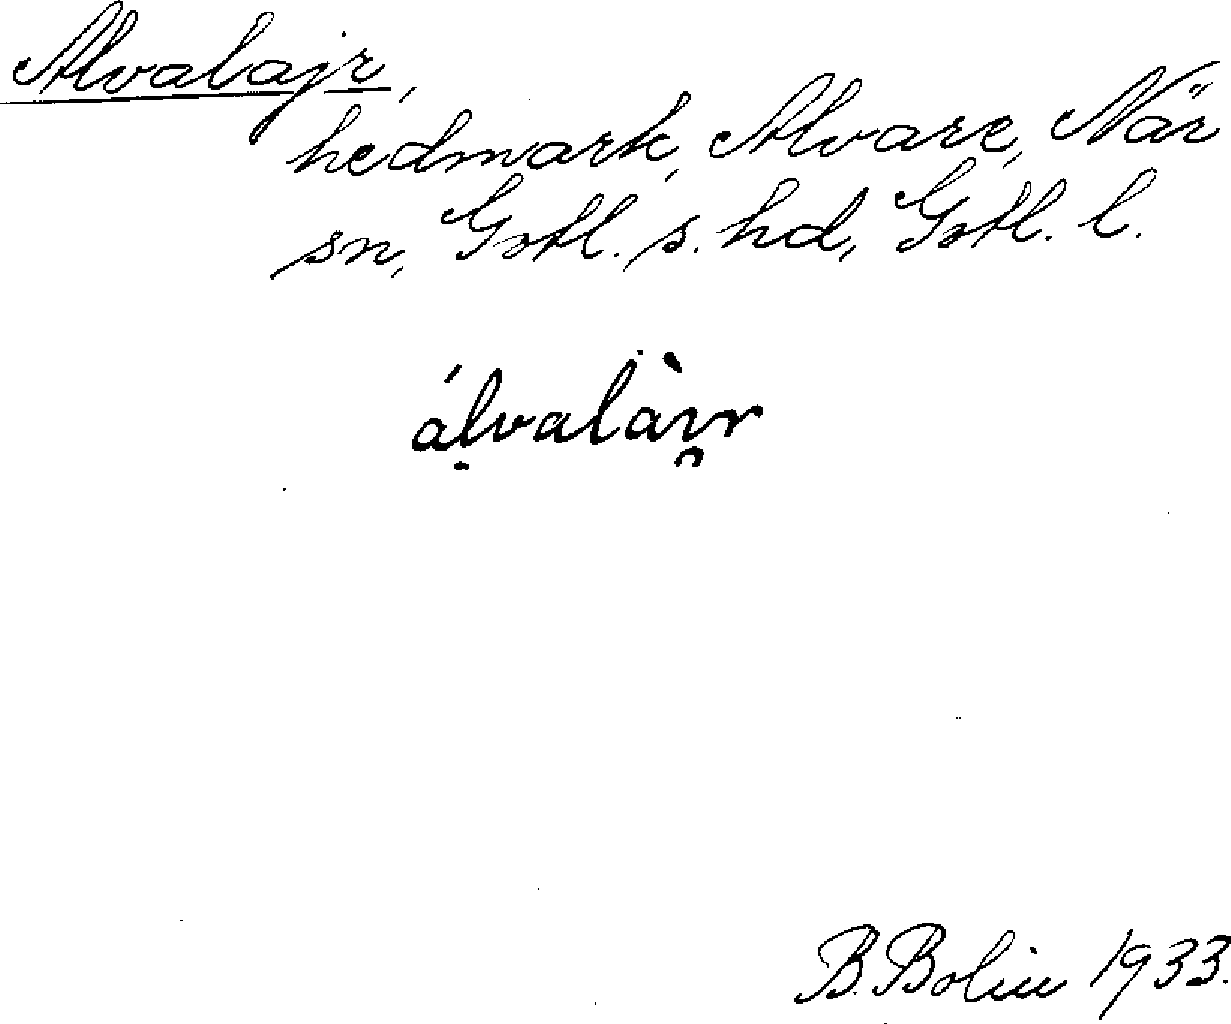 Alvalajr,
hedmark, Alvare, När
sn, Gotl. s. hd, Gotl. l.
álvalàı̯r
B. Bolin 1933.